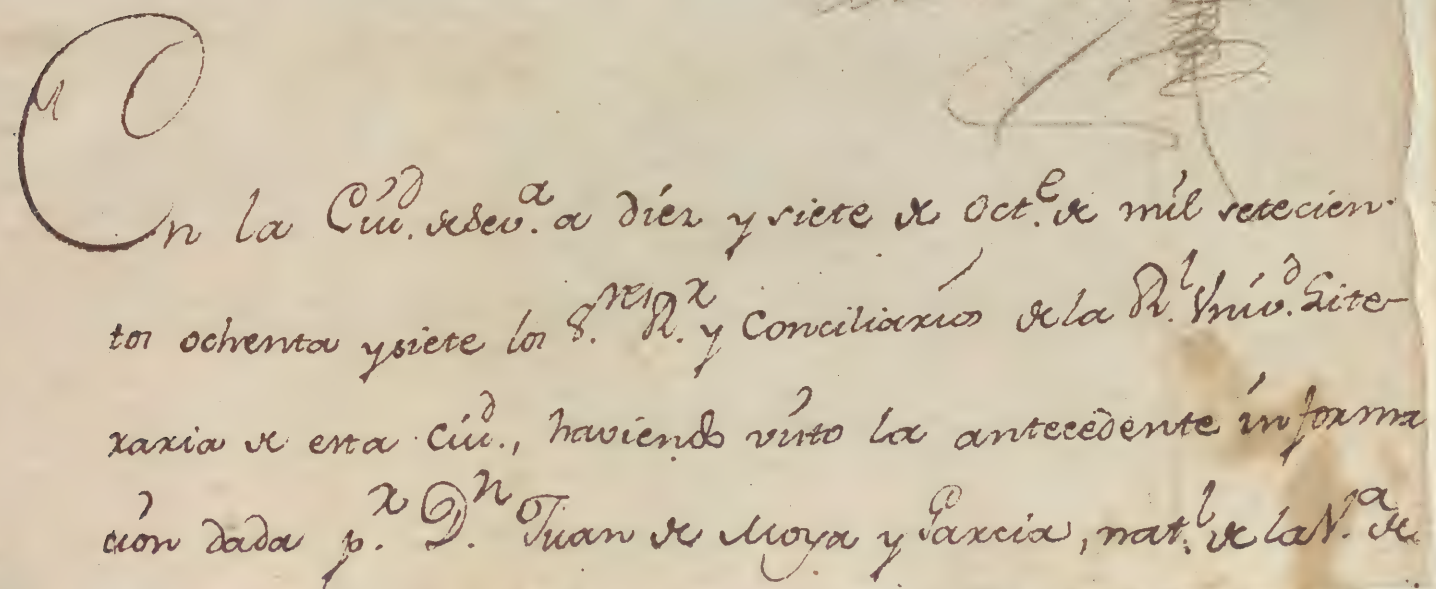 En la Ciu.d de Sev.a a diez y siete de Oct.e de mil setecien-
tos ochenta y siete los S.res R.r y Conciliarios de la R.l Univ.d Lite-
raria de esta Ciu.d, haviendo visto la antecedente informa
cion dada p.r D.n Juan de Moya y Garcia, nat.l de la V.a de